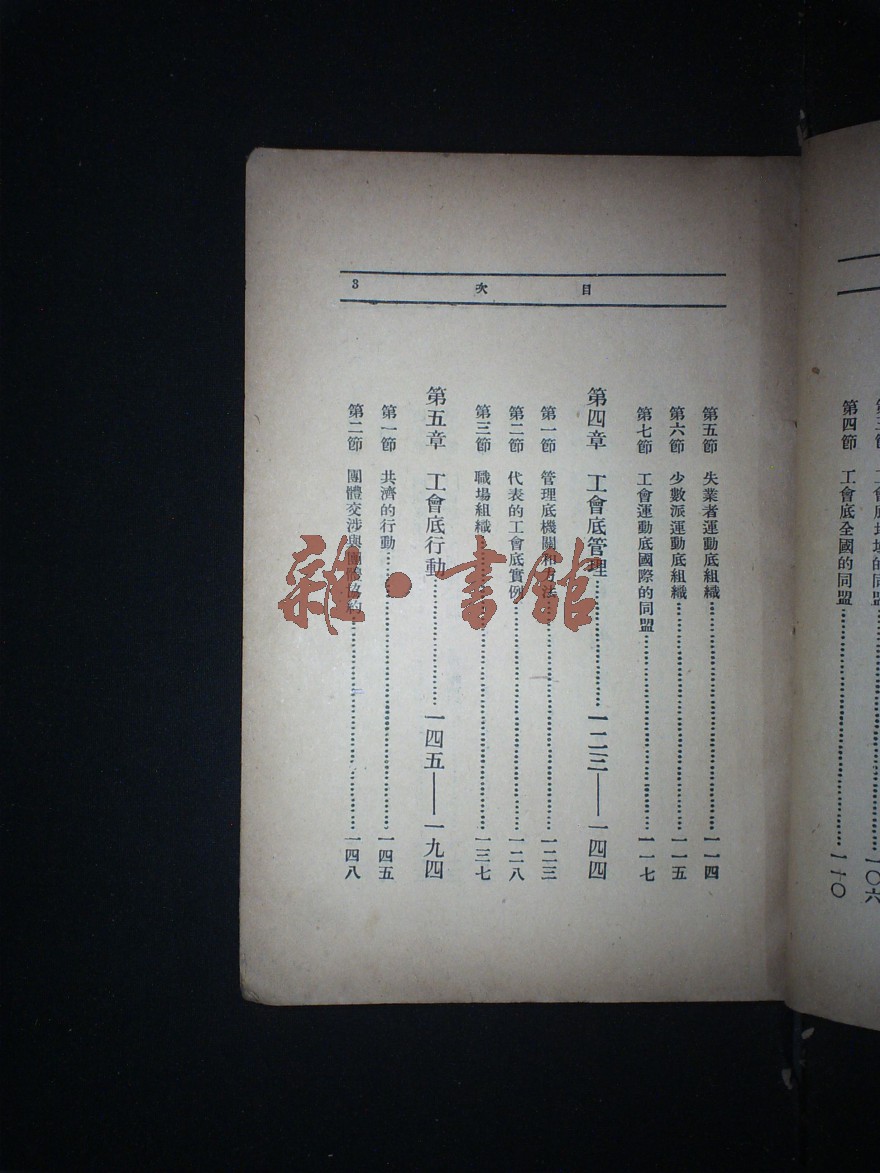 第四節　工會底全國的同盟……一一〇
目次
3
第五節　失業者運動底組織……一一四
第六節　少數派運動底組織……一一五
第七節　工會運動底國際的同盟……一一七
第四章　工會底管理……一二三——一四四
第一節　管理底機關和方法……一二三
第二節　代表的工會底實例……一二八
第三節　職場組織……一三七
第五章　工會底行動……一四五——一九四
第一節　共濟的行動……一四五
第二節　團體交涉與團體協約……一四八
雜·書館